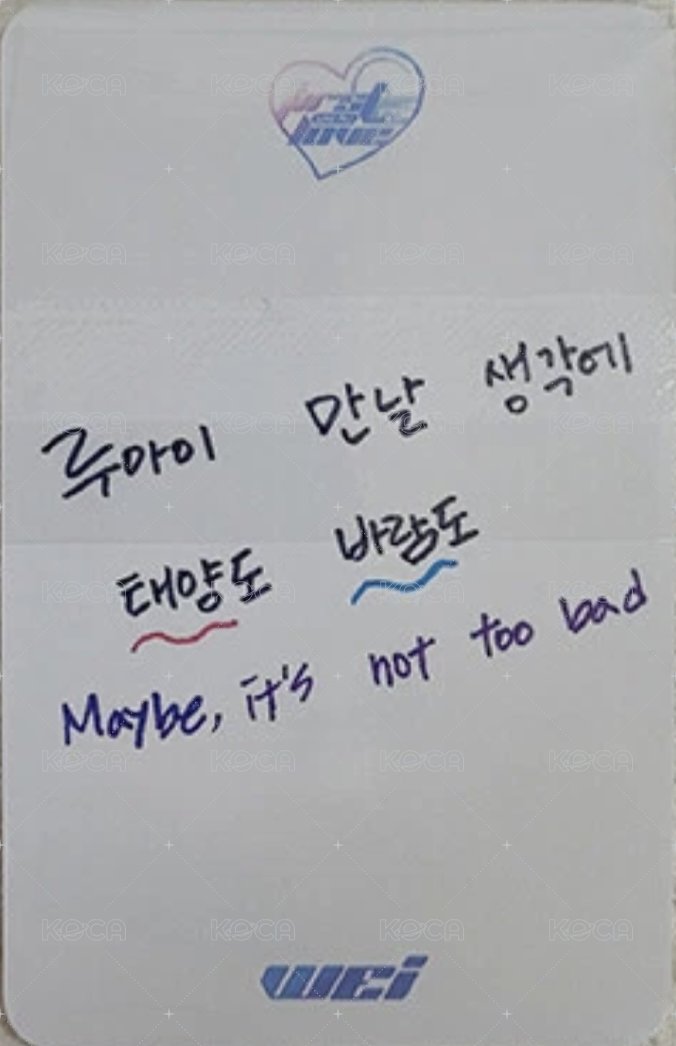 just
love
루아이 만날 생각에
태양도 바람도
Maybe, it's not too bad
WEi
KOCA